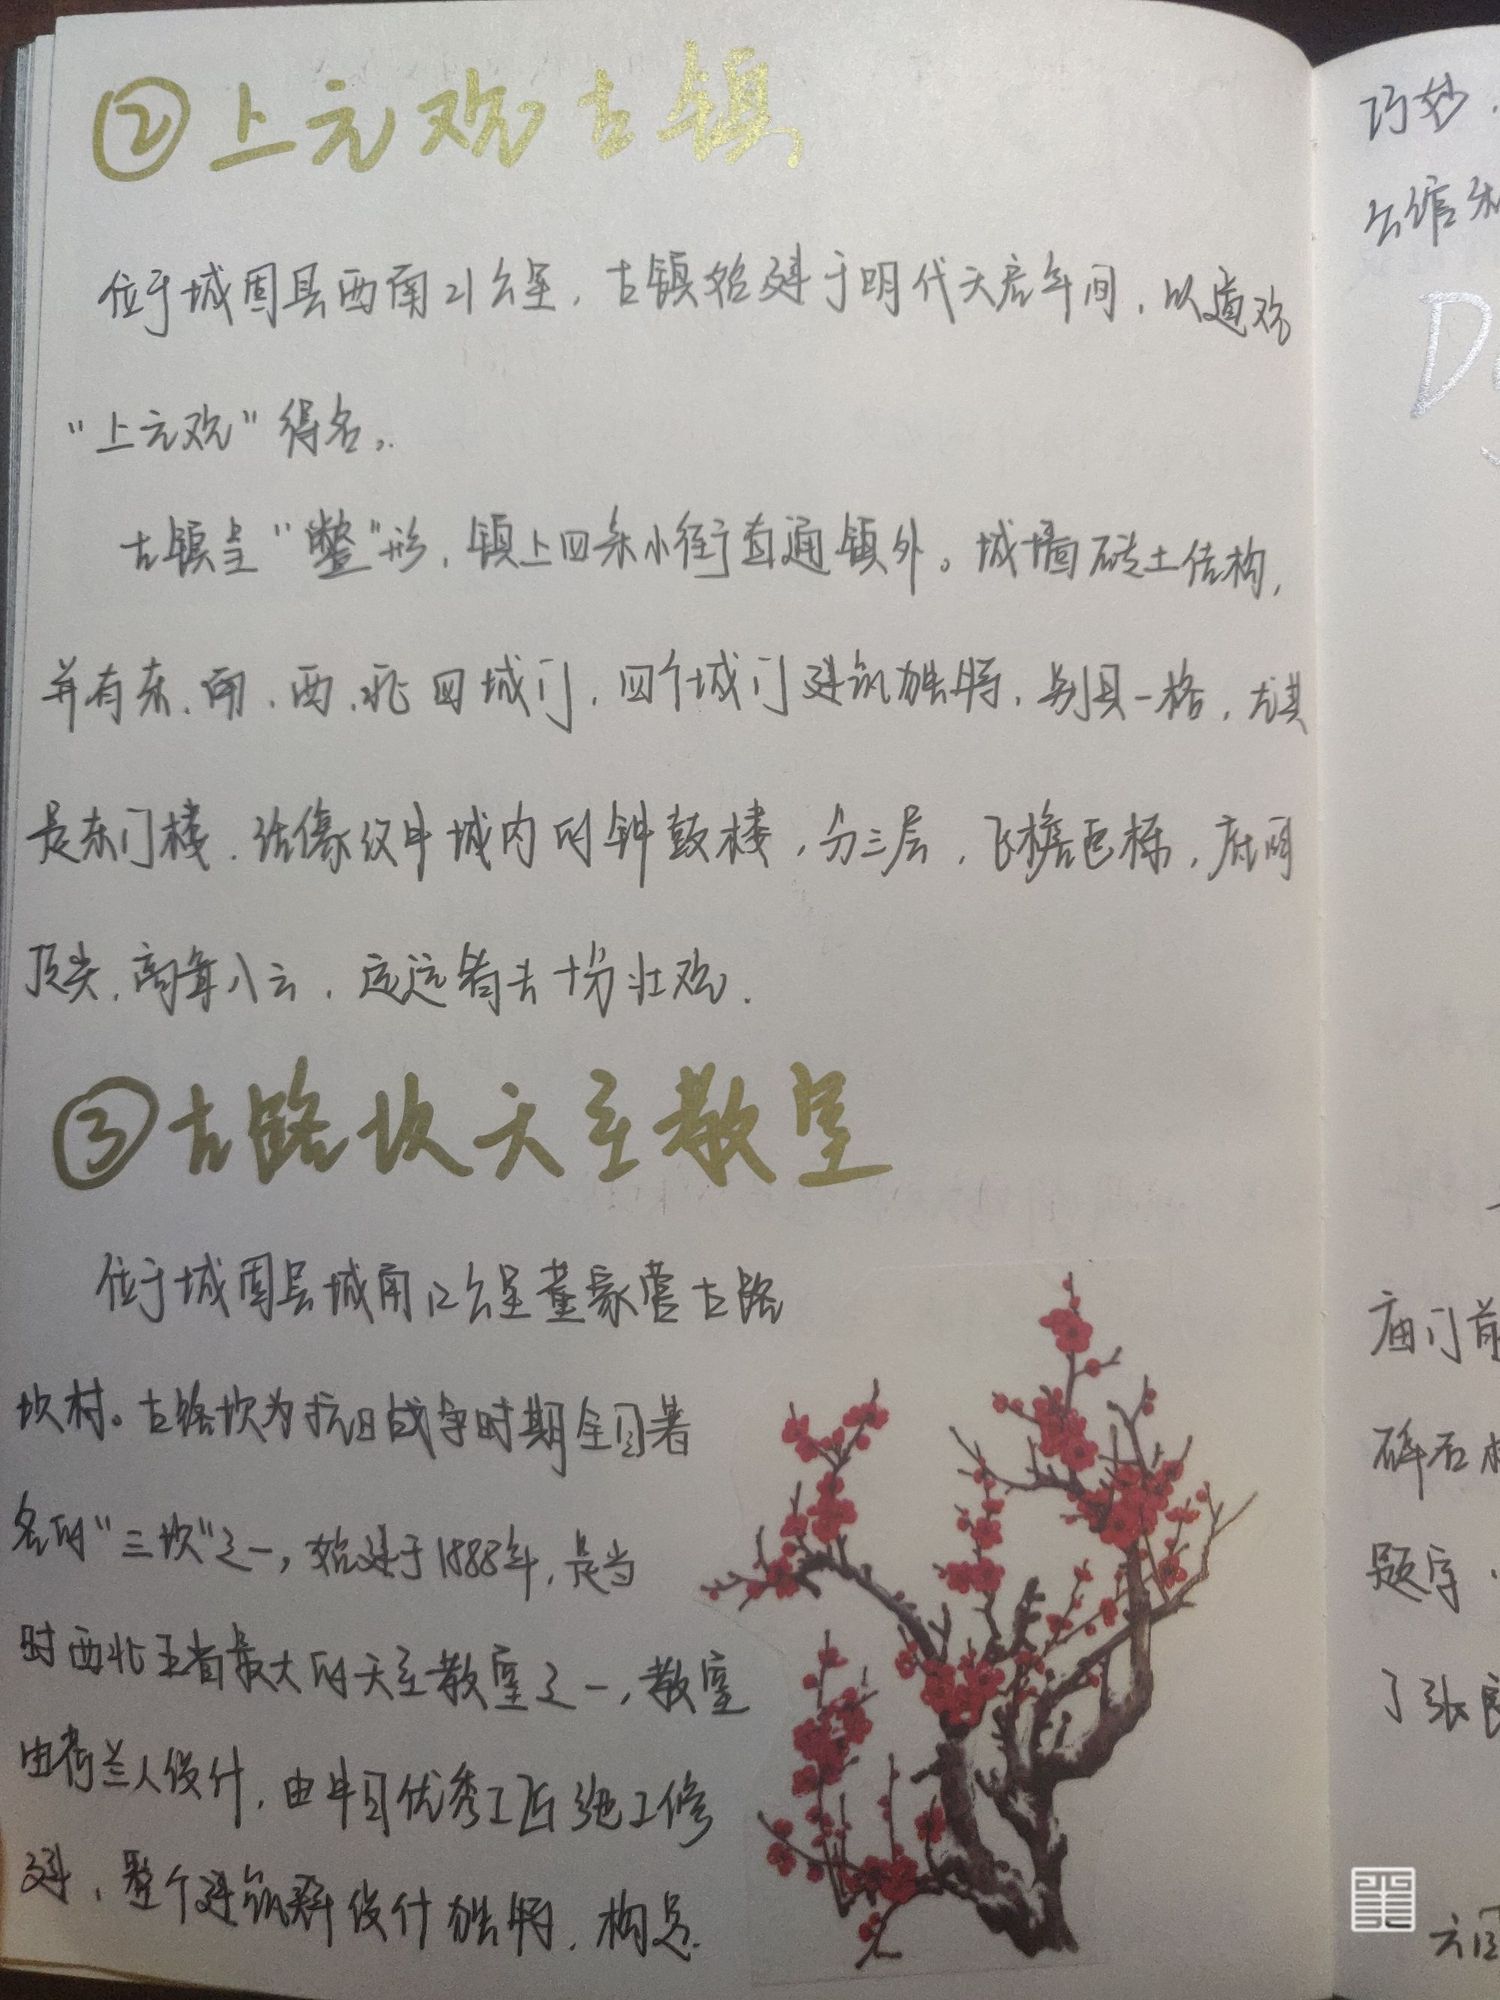 ②上元观古镇
位于城固县西南21公里，古镇始建于明代天启年间，以道观
“上元观”得名。
古镇呈“鳖”形，镇上四条小街直通镇外。城墙砖土结构，
并有东、南、西、北四城门，四个城门建筑独特，别具一格，尤其
是东门楼，活像汉中城内的钟鼓楼，分三层，飞檐画栋，底圆
顶尖，高耸入云，远远看去十分壮观．
③古路坝天主教堂
位于城固县城南12公里董家营古路
坝村。古路坝为抗日战争时期全国著
名的“三坝”之一，始建于1888年，是当
时西北五省最大的天主教堂之一，教堂
由荷兰人设计，由中国优秀工匠施工修
建，整个建筑群设计独特，构思
巧妙，
会馆
庙门前
碎石
题字，
了张良
六国